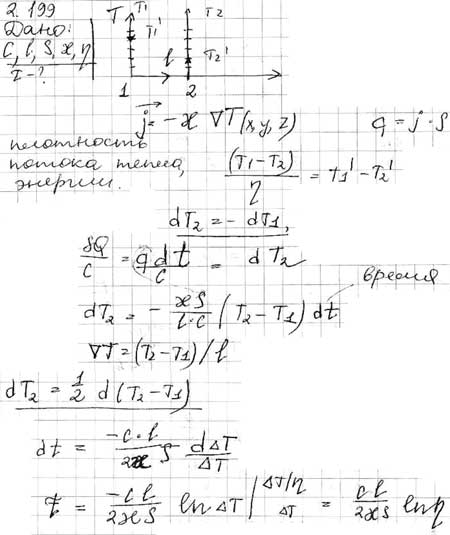 2.199
Дано:
C, l, S, ϰ, η
τ - ?
T T₁ T₂
T₁' T₂'
l
1 2
j⃗ = -ϰ ∇T(x,y,z) q = j · S
плотность
потока тепла,
энергии.
(T₁-T₂)/η = T₁' - T₂'
dT₂ = - dT₁,
δQ/C = q dt/C = dT₂
время
dT₂ = - ϰS/(l·C) (T₂ - T₁) dt
∇T = (T₂ - T₁)/l
dT₂ = 1/2 d(T₂ - T₁)
dt = -C·l/(2ϰS) dΔT/ΔT
t = -Cl/(2ϰS) ln ΔT |ΔT/η ΔT = Cl/(2ϰS) ln η